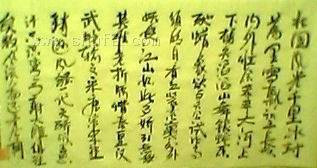 北国风光千里冰封
万里雪飘望长城
内外惟余莽莽大河上
下顿失滔滔山舞银蛇原
驰蜡象欲与天公试比高
须晴日看红装素裹分外
妖娆江山如此多娇引无数
英雄竞折腰惜秦皇汉
武略输文采唐宗宋祖
稍逊风骚一代天骄成吉
思汗只识弯弓射大雕俱往